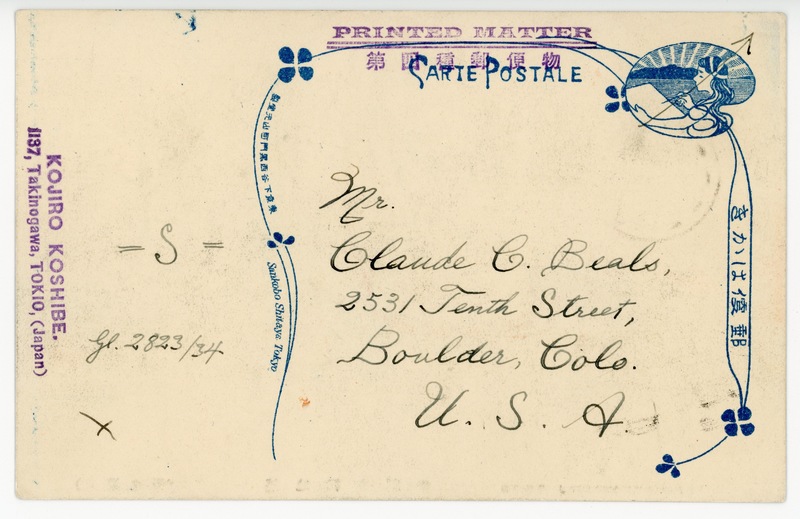 PRINTED MATTER
第四種郵便物
CARTE POSTALE
きかは便郵
Mr.
Claude C. Beals,
2531 Tenth Street,
Boulder, Colo.
U. S. A.
= S =
Gl. 2823/34
X
Sankobo Shitaya Tokyo
KOJIRO KOSHIBE.
1137, Takinogawa, TOKIO, (Japan)